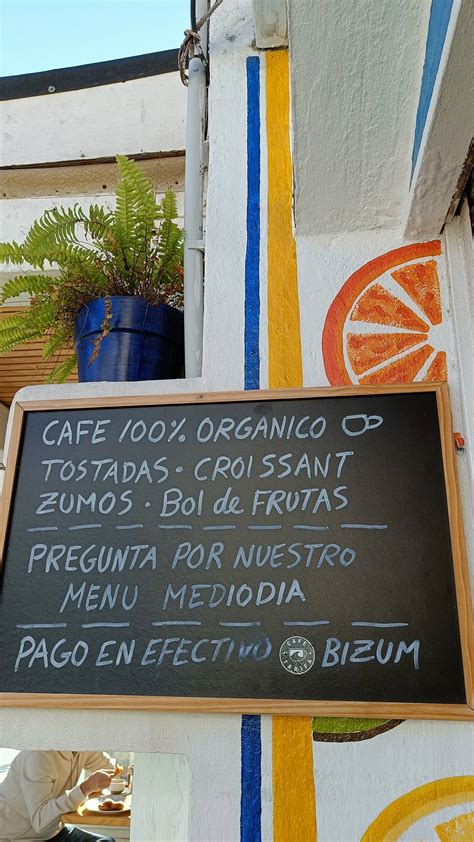 CAFE 100% ORGANICO
TOSTADAS · CROISSANT
ZUMOS · Bol de FRUTAS
PREGUNTA POR NUESTRO
MENU MEDIODIA
PAGO EN EFECTIVO BIZUM
CAFE